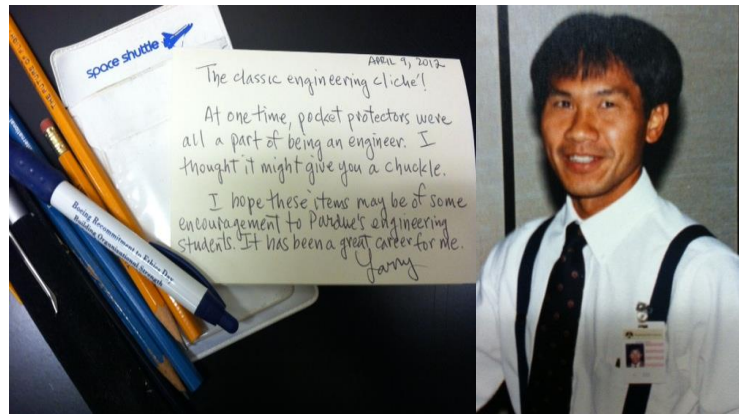 space shuttle
APRIL 9, 2012
The classic engineering cliché!
At one time, pocket protectors were
all a part of being an engineer. I
thought it might give you a chuckle.
I hope these items may be of some
encouragement to Purdue's engineering
students. It has been a great career for me.
Larry
Boeing Recommitment to Ethics Day
Building Organizational Strength